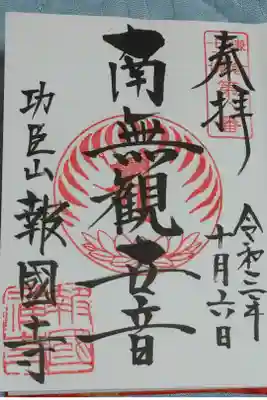 奉拝
令和三年
十月六日
南無観世音
功臣山報國寺